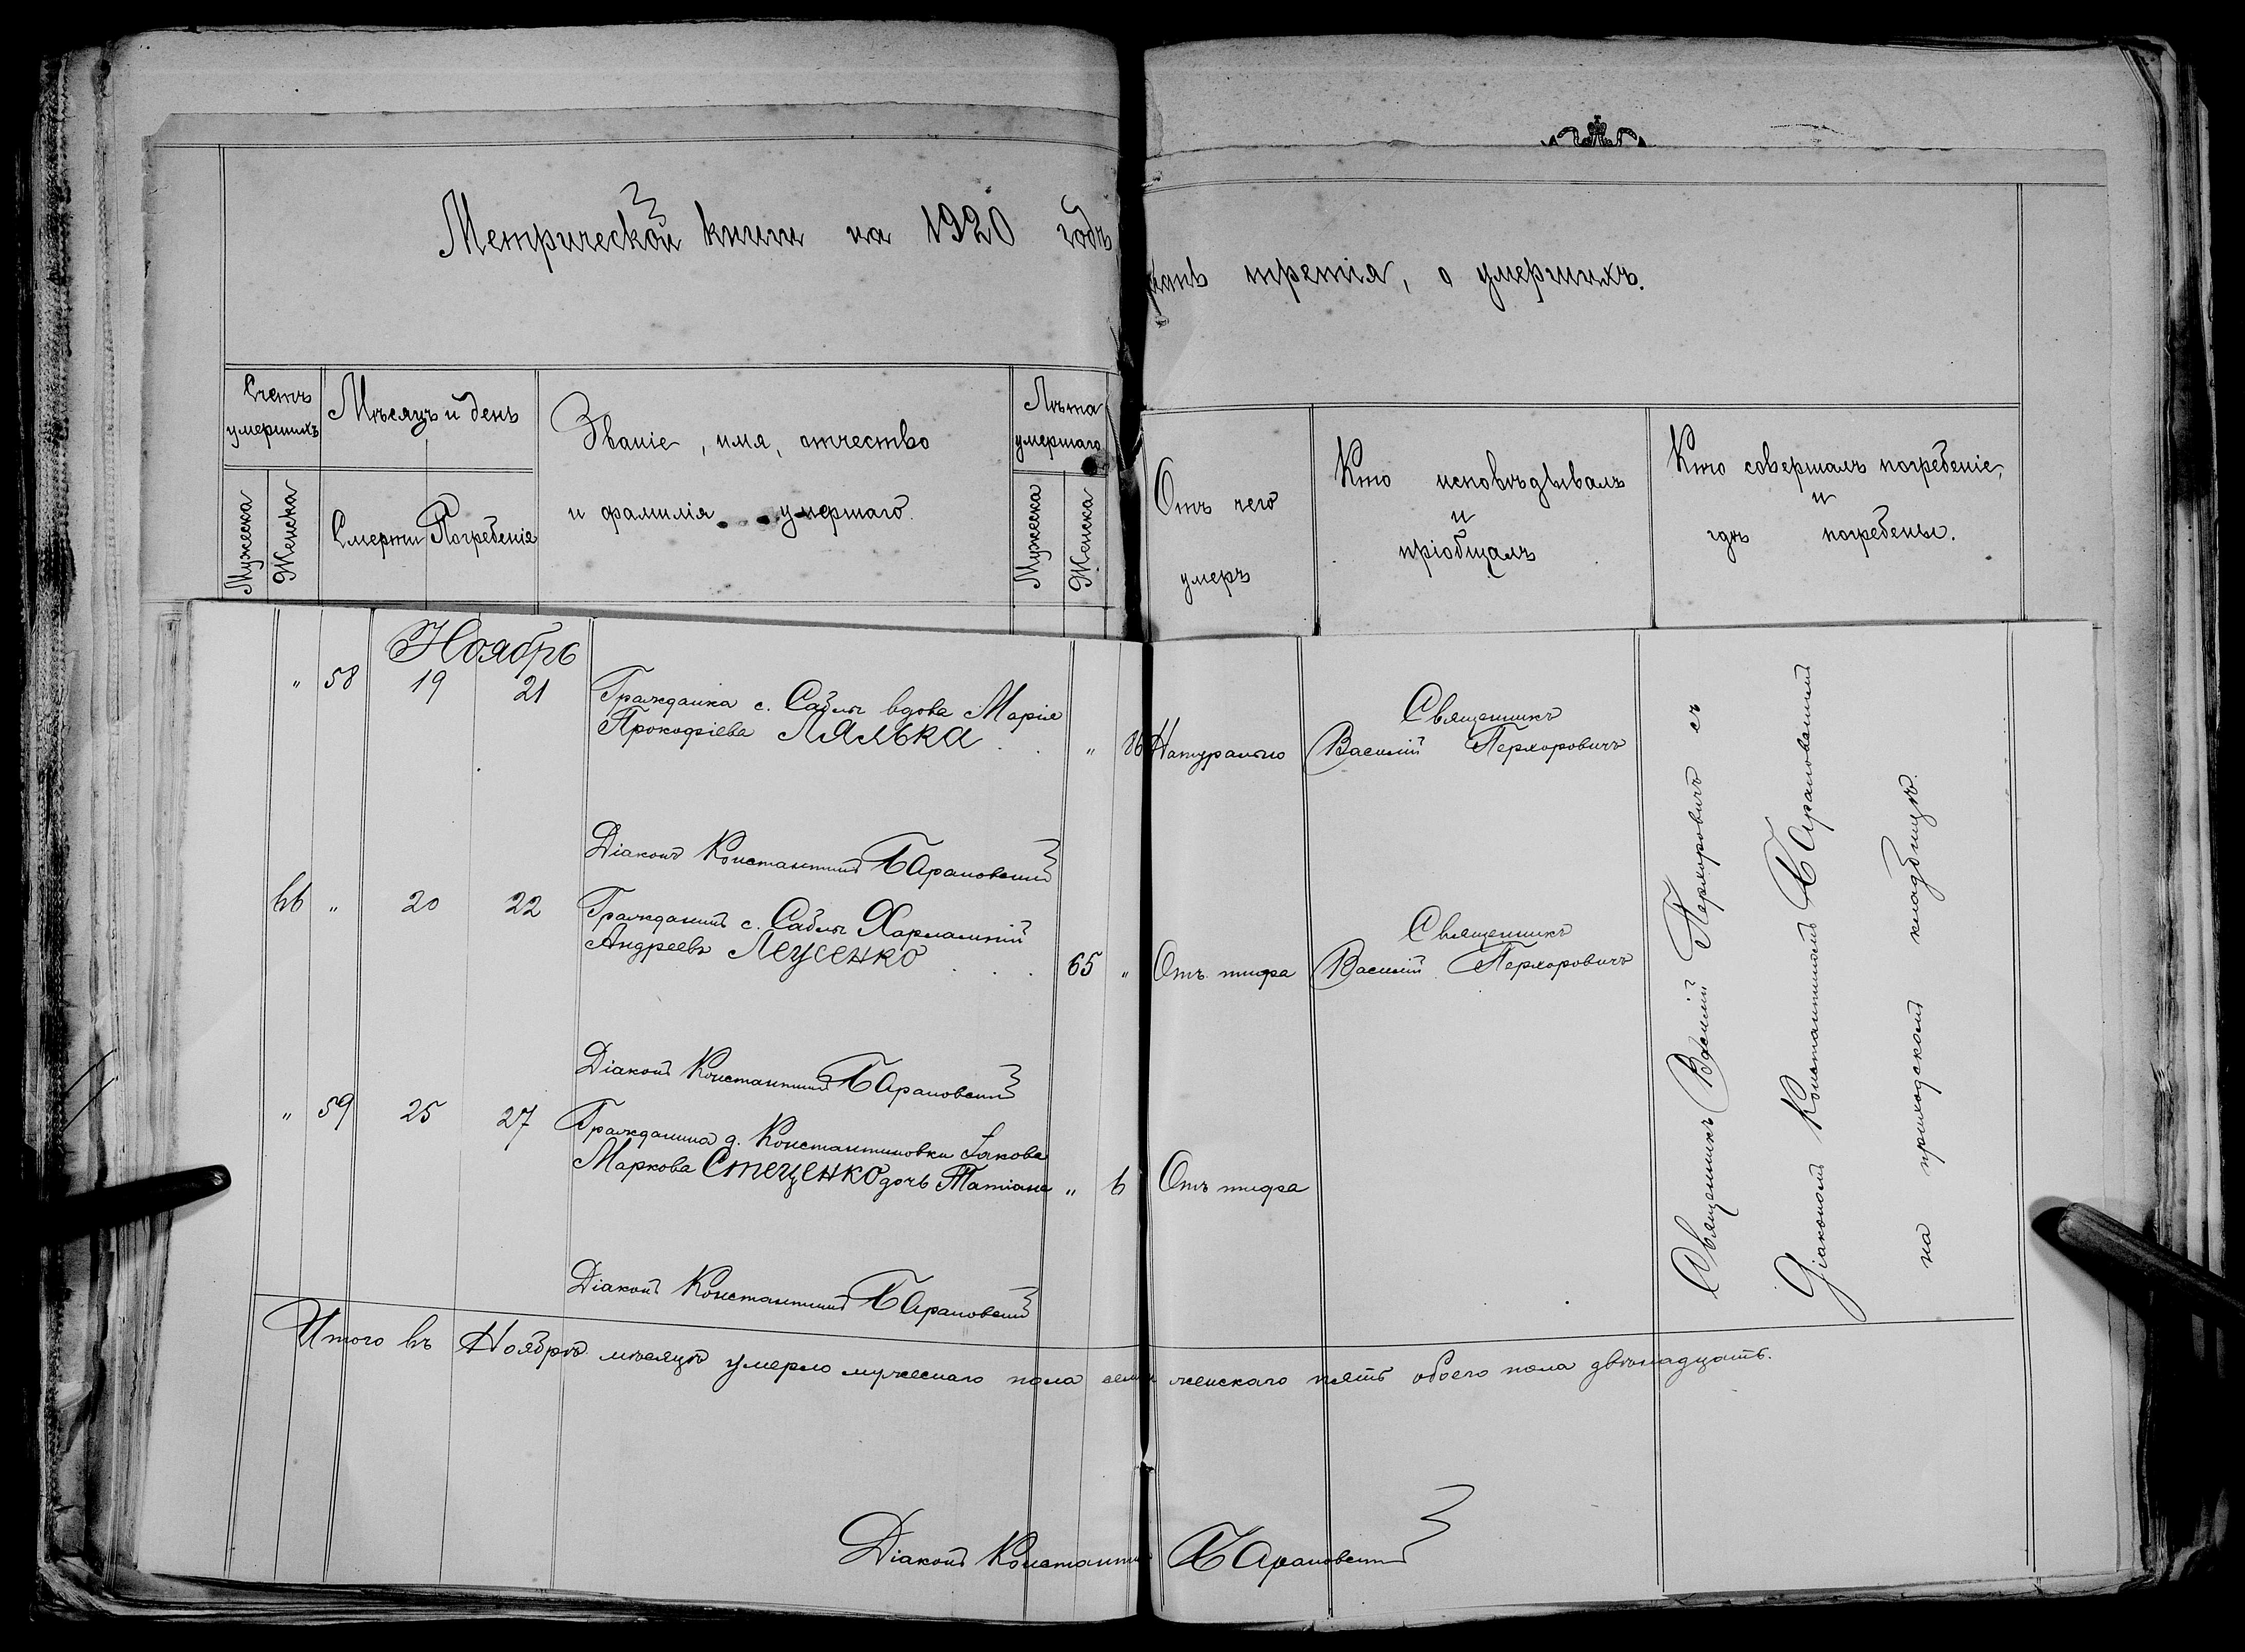 Метрической книги на 1920 годъ
третія, о умершихъ.
Счетъ умершихъ
Мужеска
Женска
Мѣсяцъ и день
Смерти
Погребенія
Званіе, имя, отчество
и фамилія умершаго.
Лѣта умершаго
Мужеска
Женска
Отъ чего
умеръ
Кто исповѣдывалъ
и
пріобщалъ
Кто совершалъ погребеніе,
и
гдѣ погребены.
Ноябрь
" 58 19 21
Гражданка с. Саблы вдова Марія
Прокофіева Лялька
" 86 Натурально
Священникъ
Василій Перхоровичъ
Діаконъ Константинъ Барановскій
66 " 20 22
Гражданинъ с. Саблы Харлампій
Андреевъ Леусенко
65 " Отъ тифа
Священникъ
Василій Перхоровичъ
Діаконъ Константинъ Барановскій
" 59 25 27
Гражданина д. Константиновки Іакова
Маркова Стеценко дочь Татіана
" 6 Отъ тифа
Діаконъ Константинъ Барановскій
Священникъ Василій Перхоровичъ съ
Діакономъ Константиномъ Барановскимъ
на приходскомъ кладбищѣ.
Итого въ Ноябрѣ мѣсяцѣ умерло мужескаго пола семь женскаго пять обоего пола двѣнадцать.
Діаконъ Константинъ Барановскій